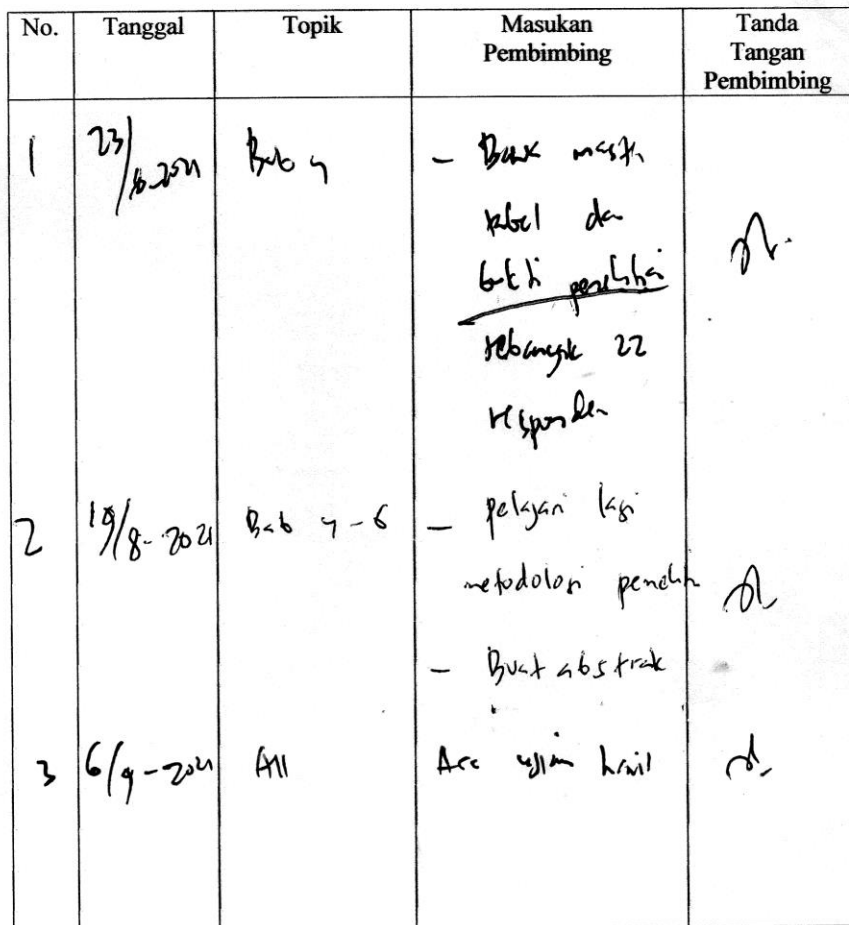 No. Tanggal Topik Masukan Pembimbing Tanda Tangan Pembimbing
1 23/8-2021 Bab 4 -
tabel da
bukti penelitian
sebanyak 22
responden
2 19/8-2021 Bab 4-6 - pelajari lagi
metodologi penelitn
- Buat abstrak
3 6/9-2021 All Acc ujian hasil